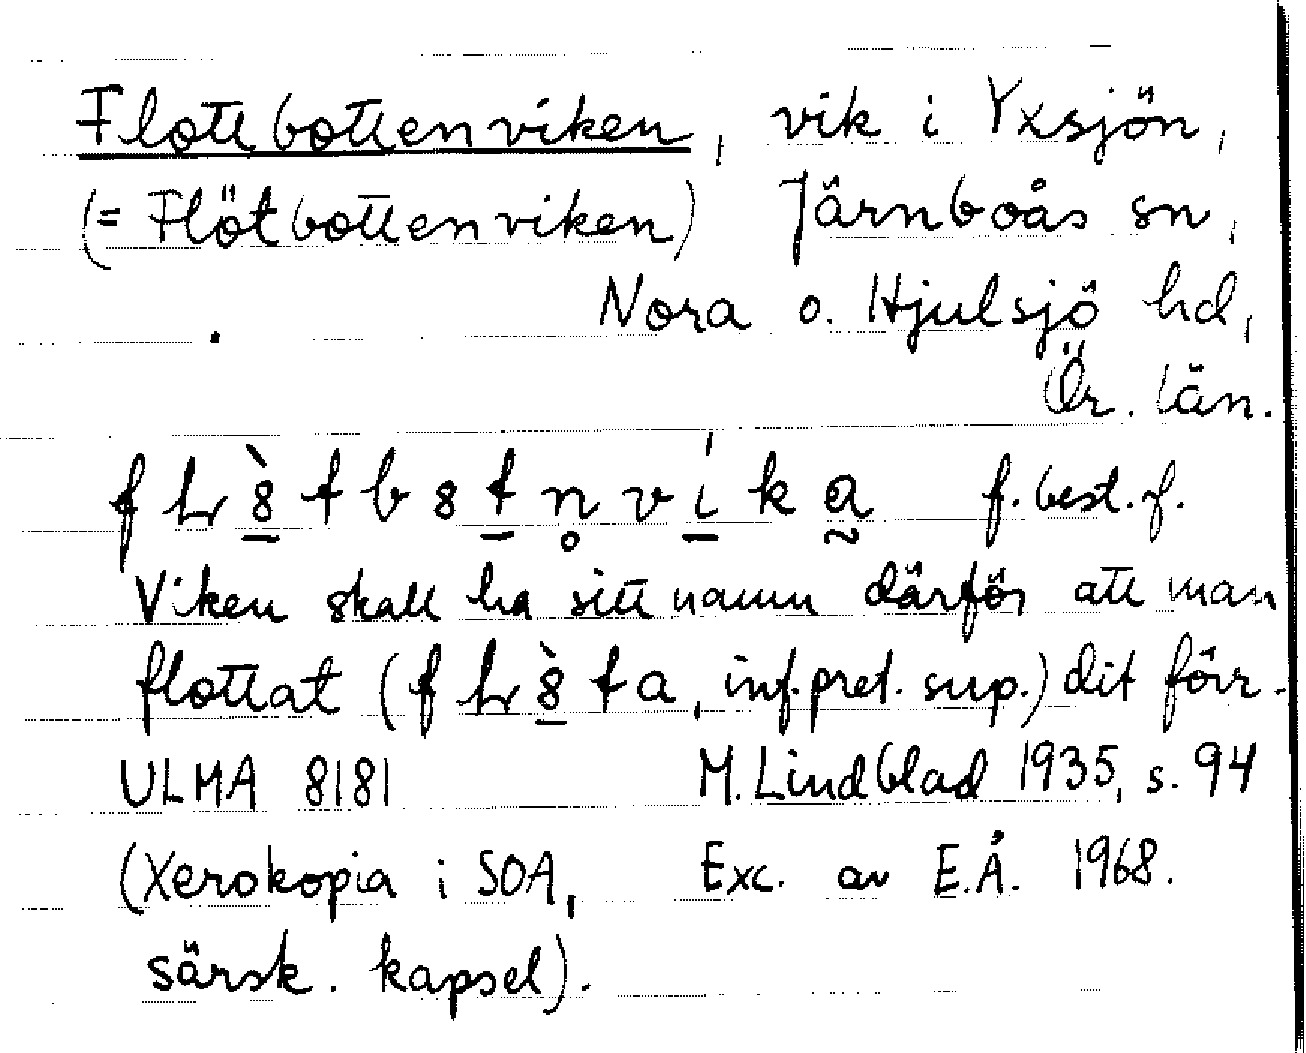 Flottbottenviken, vik i Yxsjön,
(= Flötbottenviken) Järnboås sn,
Nora o. Hjulsjö hd,
Ör. län.
f. best. f.
Viken skall ha sitt namn därför att man
flottat ( , inf. pret. sup.) dit förr.
ULMA 8181 M. Lindblad 1935, s. 94
(Xerokopia i SOA, Exc. av E.Å. 1968.
särsk. kapsel).